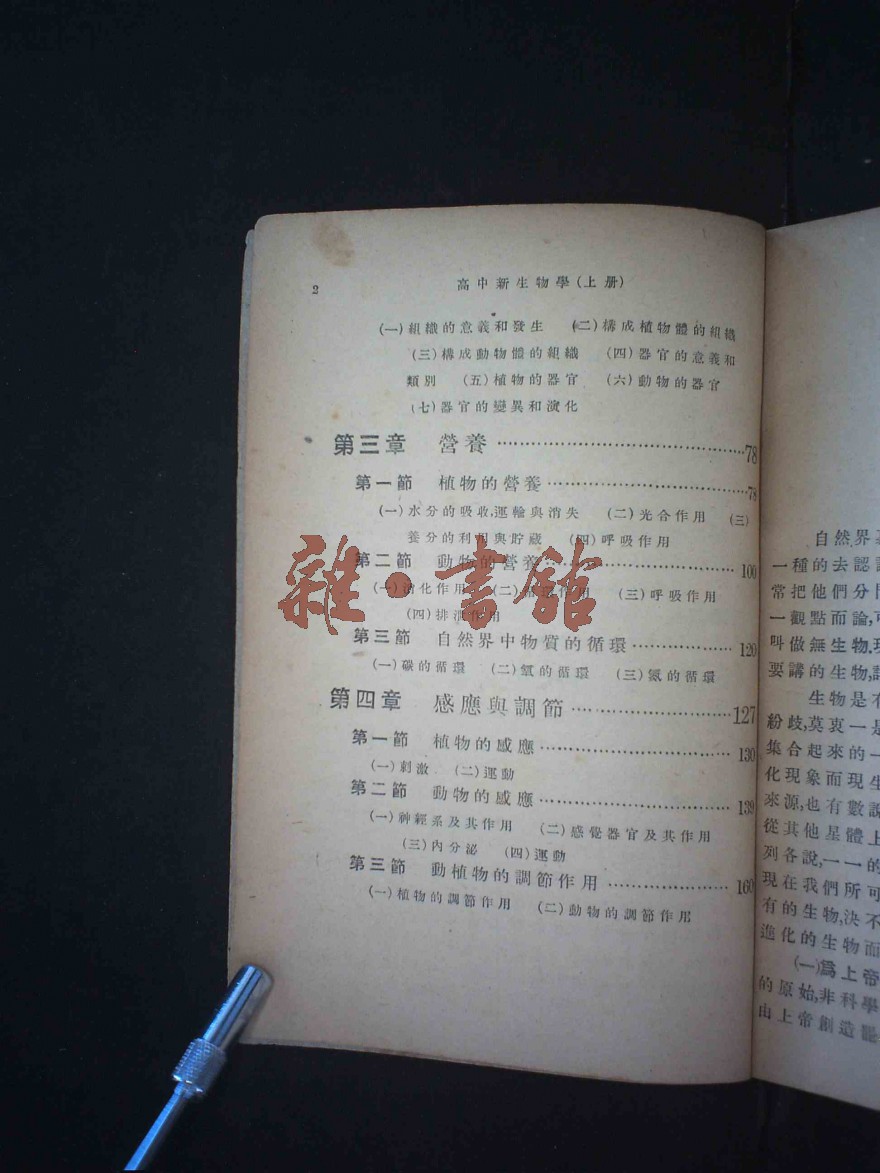 2
高中新生物學(上册)
(一)組織的意義和發生 (二)構成植物體的組織
(三)構成動物體的組織 (四)器官的意義和
類別 (五)植物的器官 (六)動物的器官
(七)器官的變異和演化
第三章 營養……78
第一節 植物的營養……78
(一)水分的吸收,運輸與消失 (二)光合作用 (三)
養分的利用與貯藏 (四)呼吸作用
第二節 動物的營養……100
(一)消化作用 (二)循環作用 (三)呼吸作用
(四)排泄作用
第三節 自然界中物質的循環……120
(一)碳的循環 (二)氧的循環 (三)氮的循環
第四章 感應與調節……127
第一節 植物的感應……130
(一)刺激 (二)運動
第二節 動物的感應……139
(一)神經系及其作用 (二)感覺器官及其作用
(三)內分泌 (四)運動
第三節 動植物的調節作用……160
(一)植物的調節作用 (二)動物的調節作用
雜·書館
自然界
一種的去認
常把他們分
一觀點而論,
叫做無生物,
要講的生物,
生物是
紛歧,莫衷一是
集合起來的一
化現象而現生
來源,也有數說
從其他星體上
列各說,一一的
現在我們所可
有的生物,決不
進化的生物而
(一)爲上帝
的原始,非科學
由上帝創造